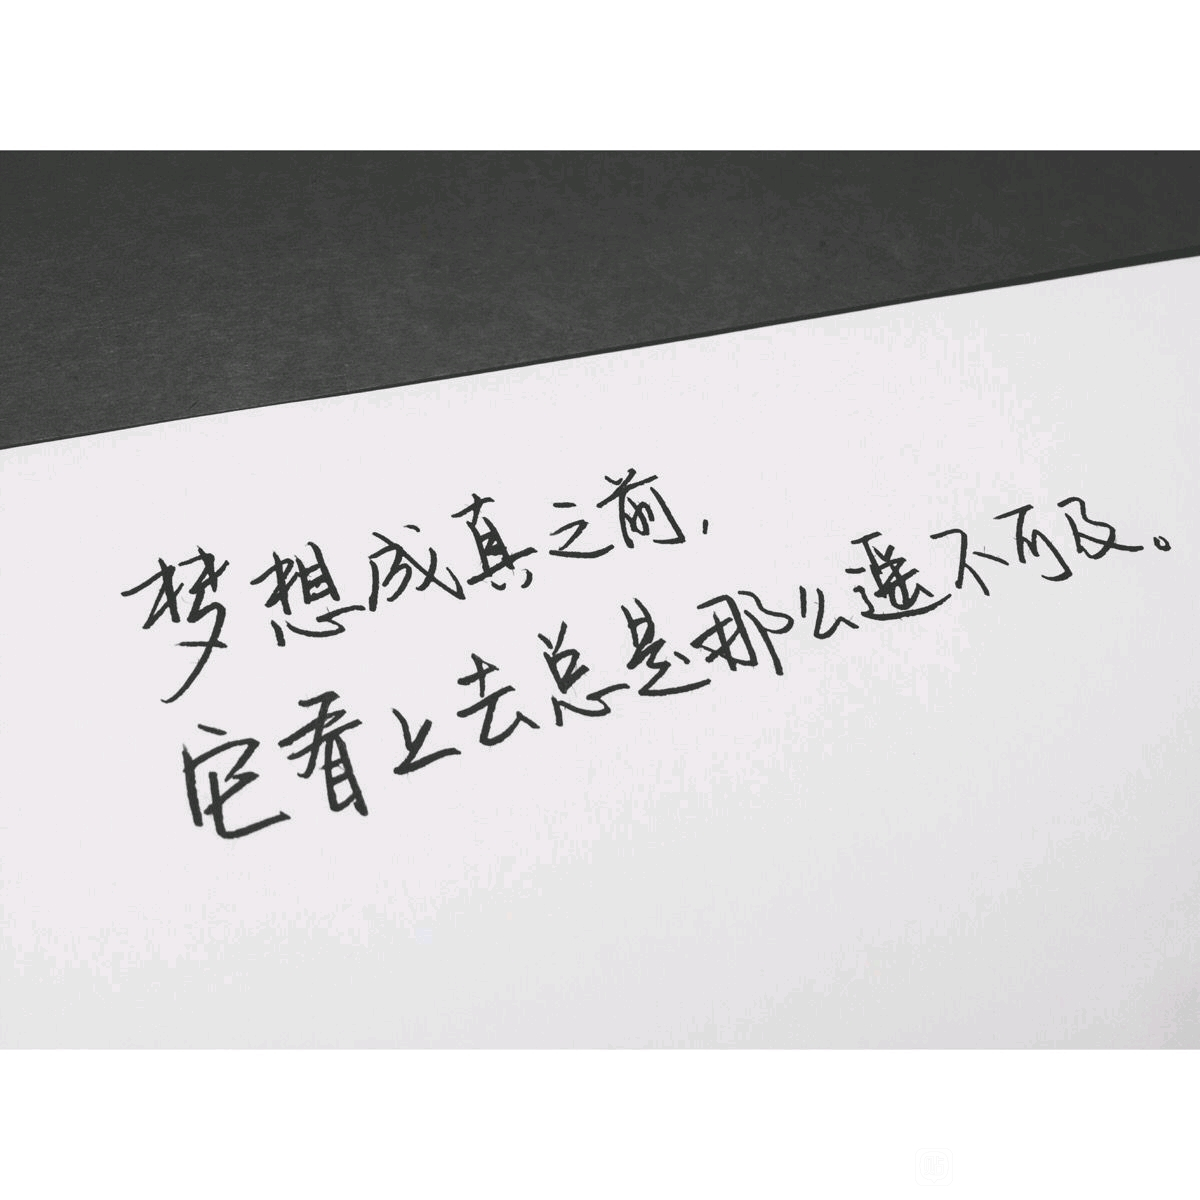 梦想成真之前，
它看上去总是那么遥不可及。